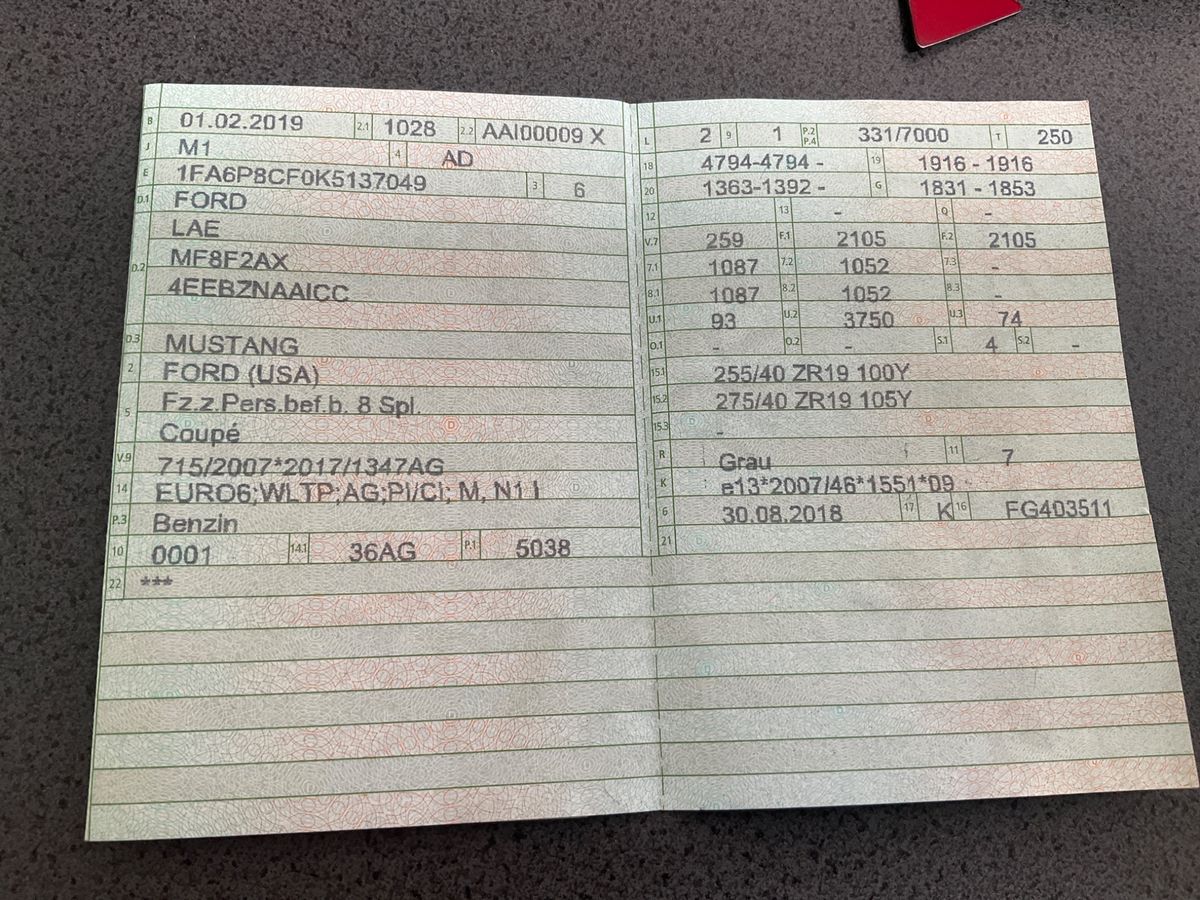 B 01.02.2019 2.1 1028 2.2 AAI00009 X
J M1 4 AD
E 1FA6P8CF0K5137049 3 6
D.1 FORD
LAE
D.2 MF8F2AX
4EEBZNAAICC
D.3 MUSTANG
2 FORD (USA)
5 Fz.z.Pers.bef.b. 8 Spl.
Coupé
V.9 715/2007*2017/1347AG
14 EURO6;WLTP;AG;PI/CI; M, N1 I
P.3 Benzin
10 0001 14.1 36AG P.1 5038
22 ***
L 2 9 1 P.2 P.4 331/7000 T 250
18 4794-4794 - 19 1916 - 1916
20 1363-1392 - G 1831 - 1853
12 13 - Q -
V.7 259 F.1 2105 F.2 2105
7.1 1087 7.2 1052 7.3 -
8.1 1087 8.2 1052 8.3 -
U.1 93 U.2 3750 U.3 74
O.1 - O.2 - S.1 4 S.2 -
15.1 255/40 ZR19 100Y
15.2 275/40 ZR19 105Y
15.3 -
R Grau 11 7
K e13*2007/46*1551*09
6 30.08.2018 17 K 16 FG403511
21